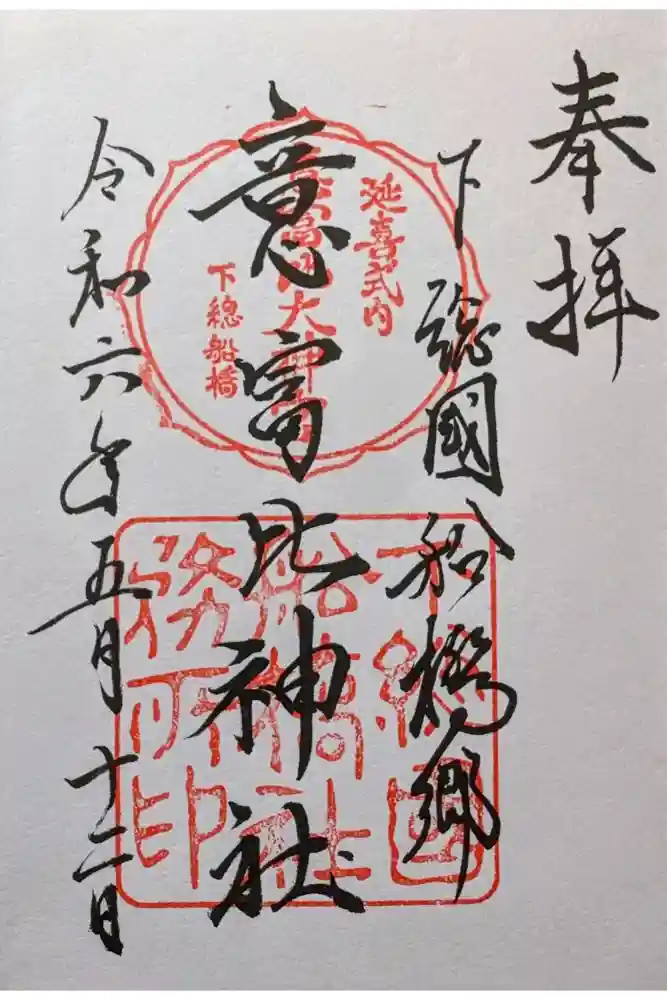 奉拝
下總國船橋郷
意富比神社
令和六年五月十二日
延喜式内
意富比大神宮
下總船橋
下總國
船橋社
務所印